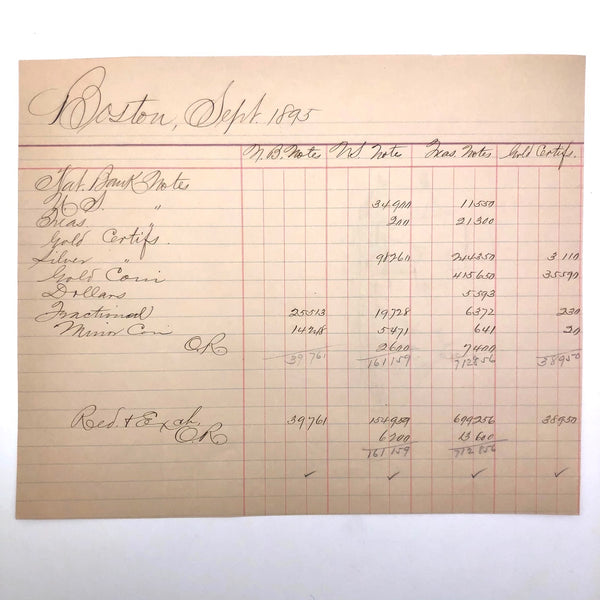 Boston, Sept. 1895
N. B. Notes U.S. Notes Treas. Notes Gold Certifs.
Nat. Bank Notes
U. S. " 34900 11550
Treas. " 200 21300
Gold Certifs.
Silver " 98260 244350 3110
Gold Coin 415650 35590
Dollars 5593
Fractional 25513 19728 6372 230
Minor Coin 14248 5471 641 20
OR 2600 7400
39761 161159 712856 38950
Red. & Exch. 39761 154959 699256 38950
OR 6200 13600
161159 712856
✓ ✓ ✓ ✓